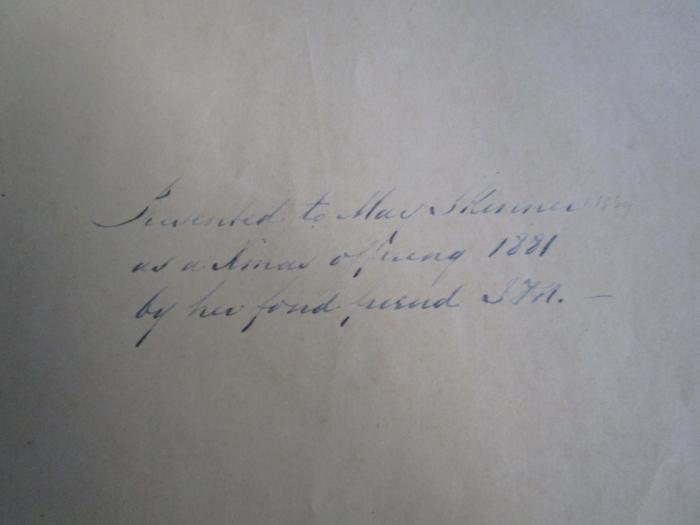 Presented to May Skinner
as a Xmas offering 1881
by her fond friend